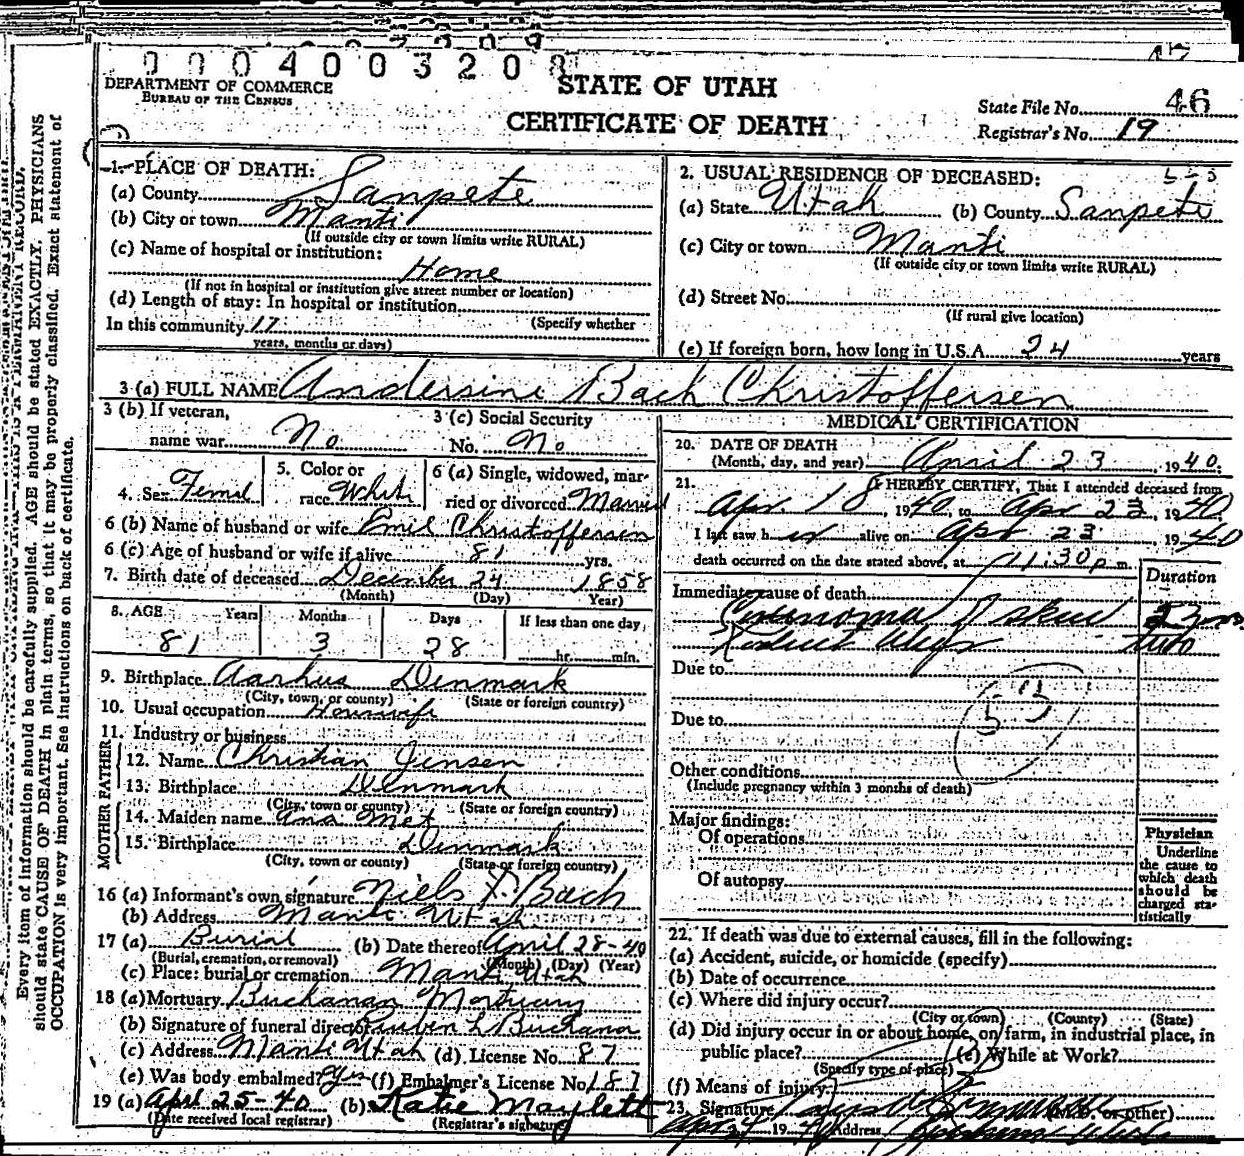 0 0 0 4 0 0 3 2 0 8
DEPARTMENT OF COMMERCE
BUREAU OF THE CENSUS
STATE OF UTAH
CERTIFICATE OF DEATH
State File No. 46
Registrar's No. 19
1. PLACE OF DEATH:
(a) County Sanpete
(b) City or town Manti
(If outside city or town limits write RURAL)
(c) Name of hospital or institution:
Home
(If not in hospital or institution give street number or location)
(d) Length of stay: In hospital or institution
In this community 17 (Specify whether
years, months or days)
2. USUAL RESIDENCE OF DECEASED:
(a) State Utah (b) County Sanpete
(c) City or town Manti
(If outside city or town limits write RURAL)
(d) Street No.
(If rural give location)
(e) If foreign born, how long in U.S.A. 24 years
3 (a) FULL NAME Andersine Bach Christoffersen
3 (b) If veteran,
name war No
3 (c) Social Security
No. No
4. Sex Femal
5. Color or
race White
6 (a) Single, widowed, mar-
ried or divorced Married
6 (b) Name of husband or wife Emil Christoffersen
6 (c) Age of husband or wife if alive 81 yrs.
7. Birth date of deceased December 24 1858
(Month) (Day) Year)
8. AGE Years Months Days If less than one day
81 3 28 hr. min.
9. Birthplace Aarhus Denmark
(City, town, or county) (State or foreign country)
10. Usual occupation Housewife
11. Industry or business
FATHER
12. Name Christian Jensen
13. Birthplace Denmark
(City, town or county) (State or foreign country)
MOTHER
14. Maiden name Ana Met
15. Birthplace Denmark
(City, town or county) (State or foreign country)
16 (a) Informant's own signature Niels Bach
(b) Address Manti Utah
17 (a) Burial (b) Date thereof April 28-40
(Burial, cremation, or removal) (Month) (Day) (Year)
(c) Place: burial or cremation Manti Utah
18 (a) Mortuary Buchanan Mortuary
(b) Signature of funeral director Ruben L Buchanan
(c) Address Manti Utah (d) License No. 87
(e) Was body embalmed? Yes (f) Embalmer's License No. 187
19 (a) April 25-40 (b) Katie Maylett
(Date received local registrar) (Registrar's signature)
MEDICAL CERTIFICATION
20. DATE OF DEATH
(Month, day, and year) April 23 1940
21. I HEREBY CERTIFY, That I attended deceased from
Apr. 18, 1940, to Apr 23, 1940
I last saw her alive on Apr 23 1940
death occurred on the date stated above, at 11:30 p m.
Duration
Immediate cause of death
Due to
Due to
Other conditions
(Include pregnancy within 3 months of death)
Major findings:
Of operations
Of autopsy
Physician
Underline
the cause to
which death
should be
charged sta-
tistically
22. If death was due to external causes, fill in the following:
(a) Accident, suicide, or homicide (specify)
(b) Date of occurrence
(c) Where did injury occur?
(City or town) (County) (State)
(d) Did injury occur in or about home, on farm, in industrial place, in
public place? (e) While at Work?
(Specify type of place)
(f) Means of injury
23. Signature (M.D. or other)
19 40 Address
Every item of information should be carefully supplied. AGE should be stated EXACTLY. PHYSICIANS
should state CAUSE OF DEATH in plain terms, so that it may be properly classified. Exact statement of
OCCUPATION is very important. See instructions on back of certificate.